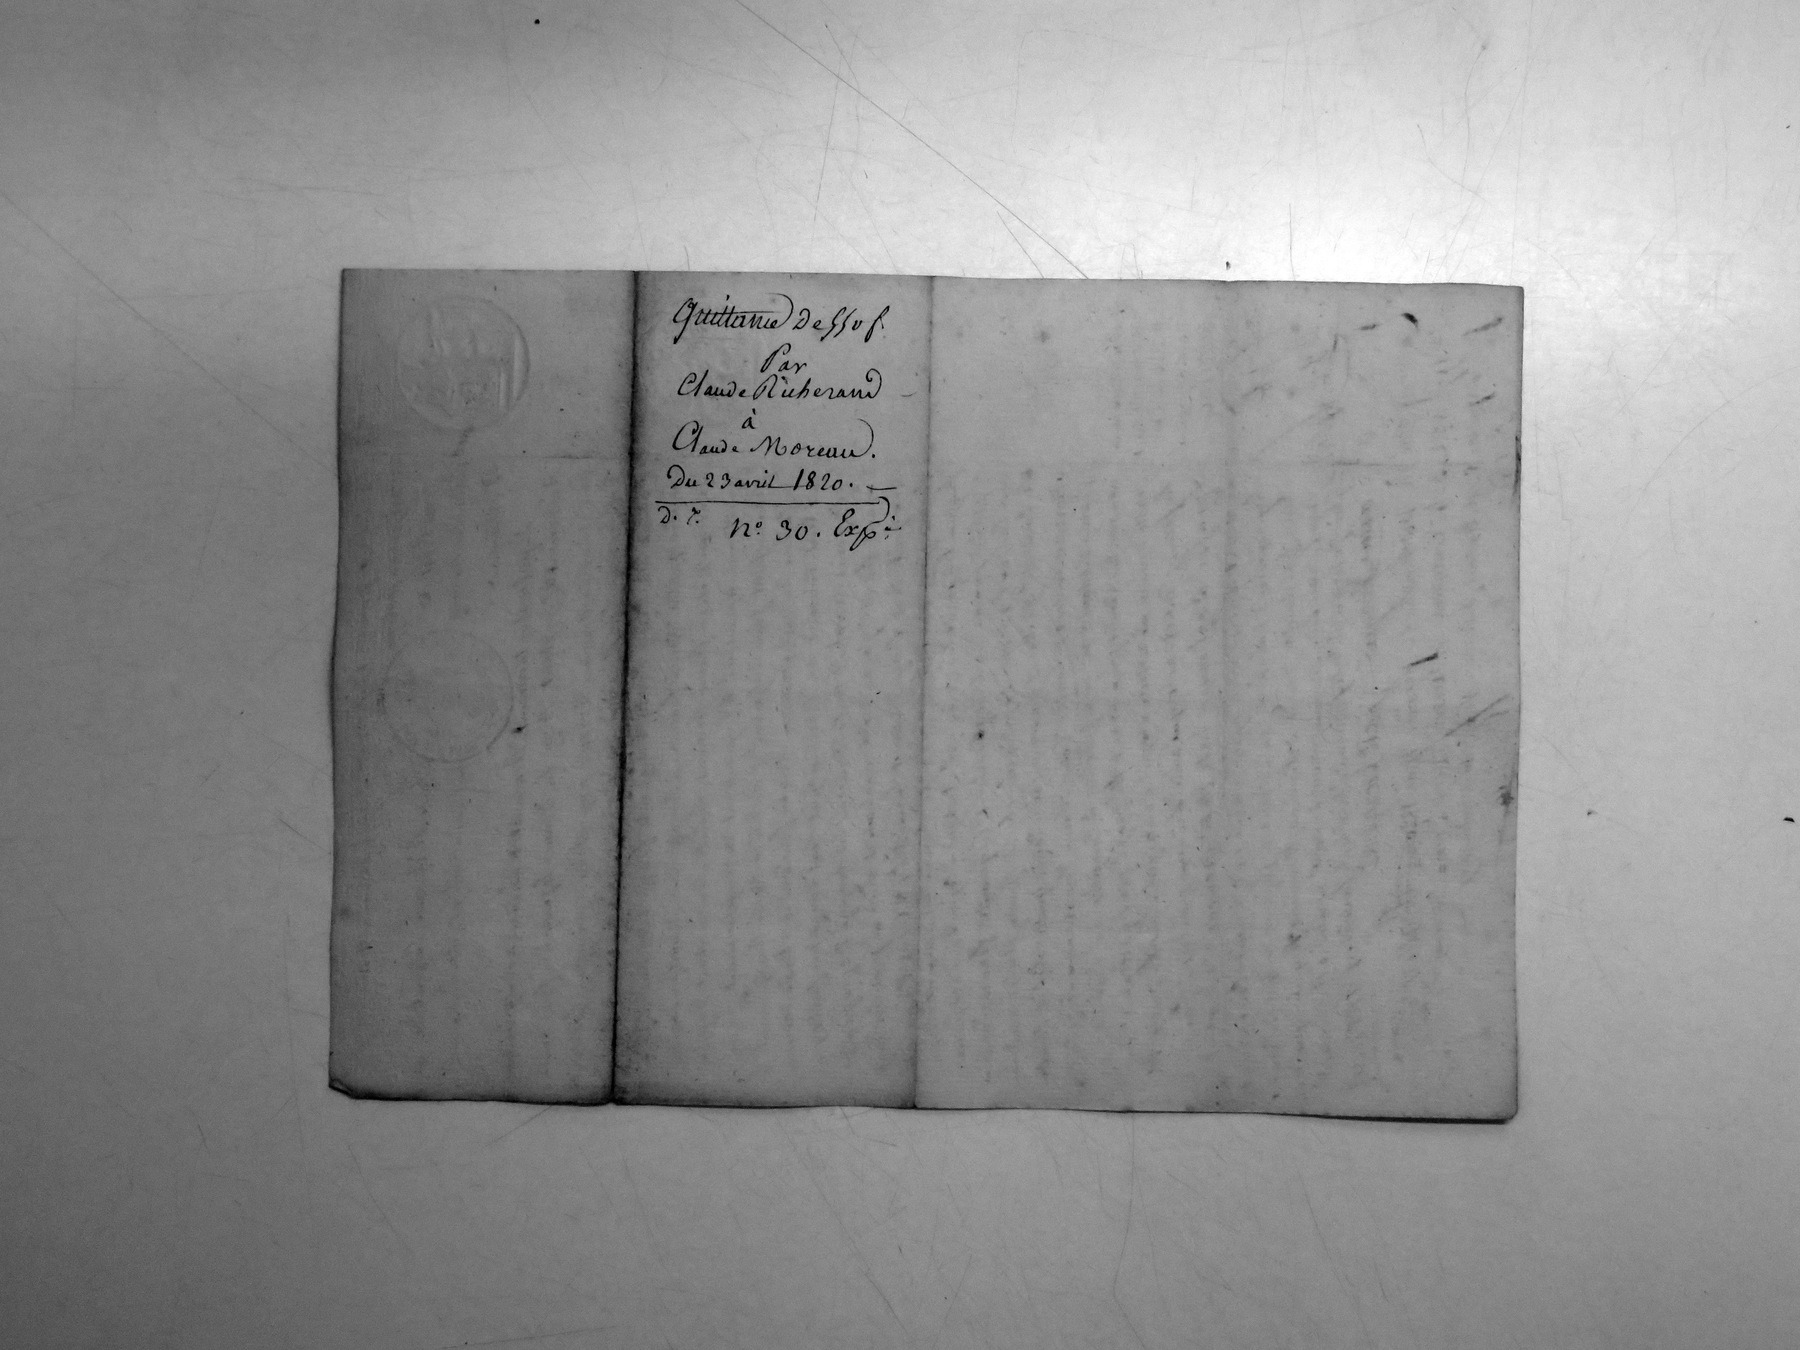 Quittance De 550 f.
Par
Claude Richerand
à
Claude Moreau.
Du 23 avril 1820.
D. 7. N.º 30. Exp.